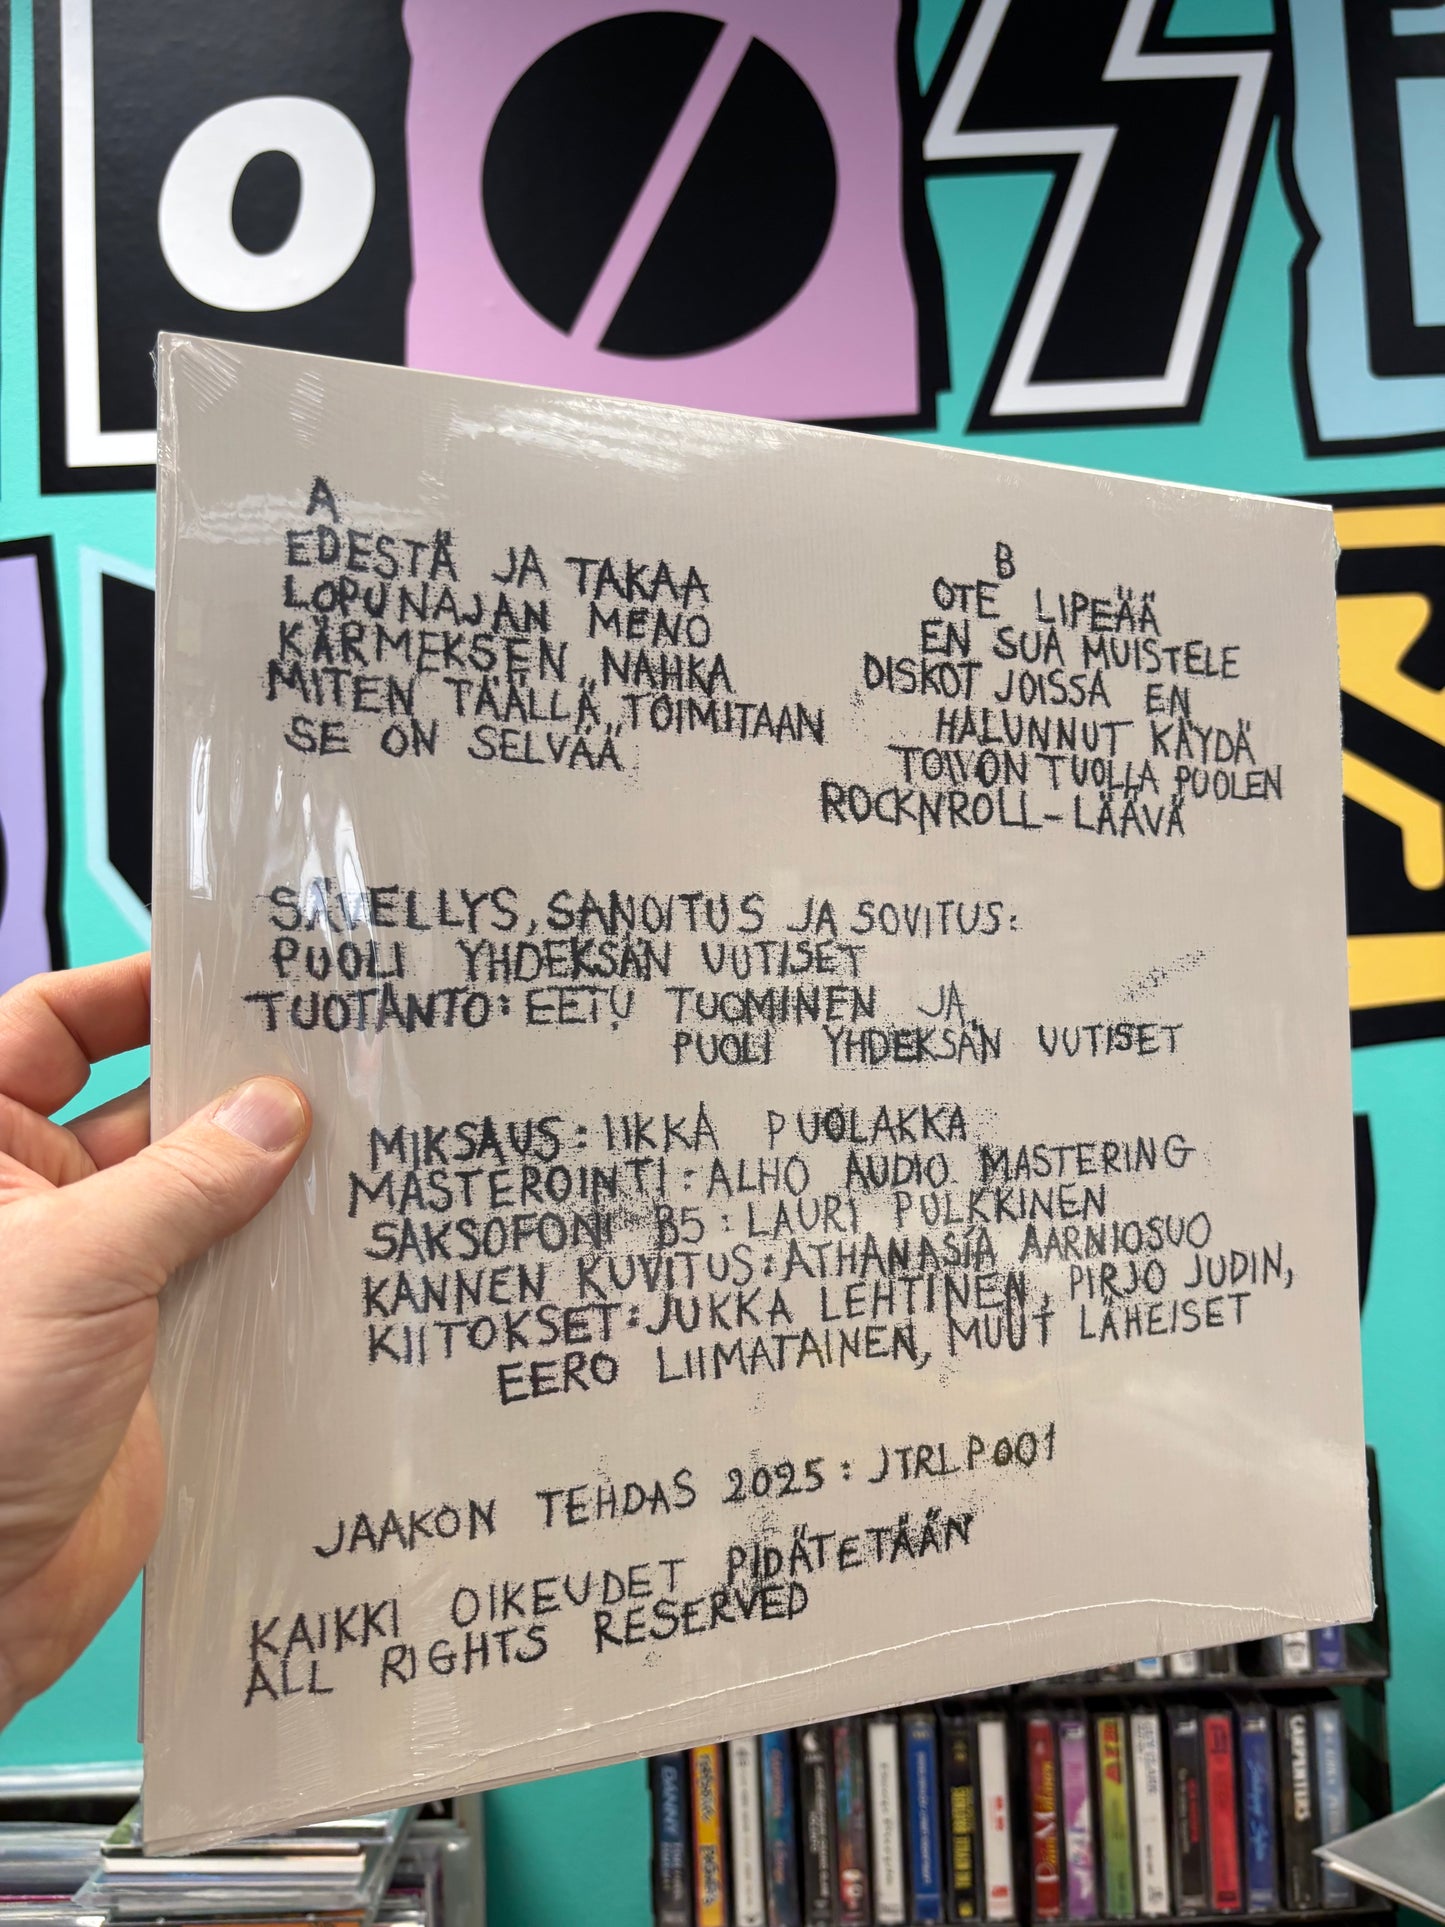 A
EDESTÄ JA TAKAA
LOPUNAJAN MENO
KÄRMEKSEN NAHKA
MITEN TÄÄLLÄ TOIMITAAN
SE ON SELVÄÄ
B
OTE LIPEÄÄ
EN SUA MUISTELE
DISKOT JOISSA EN
HALUNNUT KÄYDÄ
TOIVON TUOLLA PUOLEN
ROCKNROLL-LÄÄVÄ
SÄVELLYS, SANOITUS JA SOVITUS:
PUOLI YHDEKSÄN UUTISET
TUOTANTO: EETU TUOMINEN JA
PUOLI YHDEKSÄN UUTISET
MIKSAUS: IIKKA PUOLAKKA
MASTEROINTI: ALHO AUDIO MASTERING
SAKSOFONI B5: LAURI PULKKINEN
KANNEN KUVITUS: ATHANASÍA AARNIOSUO
KIITOKSET: JUKKA LEHTINEN, PIRJO JUDIN,
EERO LIIMATAINEN, MUUT LÄHEISET
JAAKON TEHDAS 2025: JTRLP001
KAIKKI OIKEUDET PIDÄTETÄÄN
ALL RIGHTS RESERVED